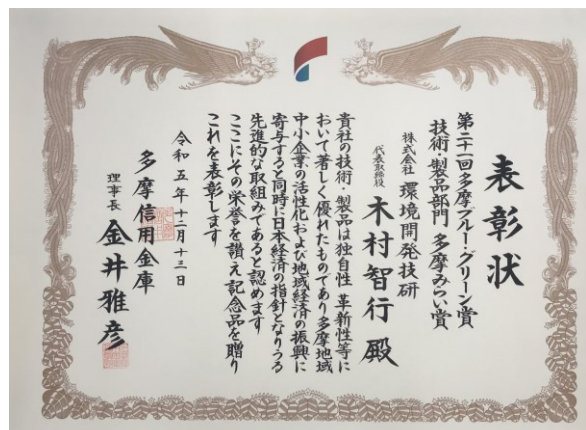 表彰状
第二十一回多摩ブルー・グリーン賞
技術・製品部門 多摩みらい賞
株式会社 環境開発技研
代表取締役 木村智行 殿
貴社の技術・製品は独自性 革新性等に
おいて著しく優れたものであり多摩地域
中小企業の活性化および地域経済の振興に
寄与すると同時に日本経済の指針となりうる
先進的な取組みであると認めます
ここにその栄誉を讃え記念品を贈り
これを表彰します
令和五年十二月十三日
多摩信用金庫
理事長 金井雅彦